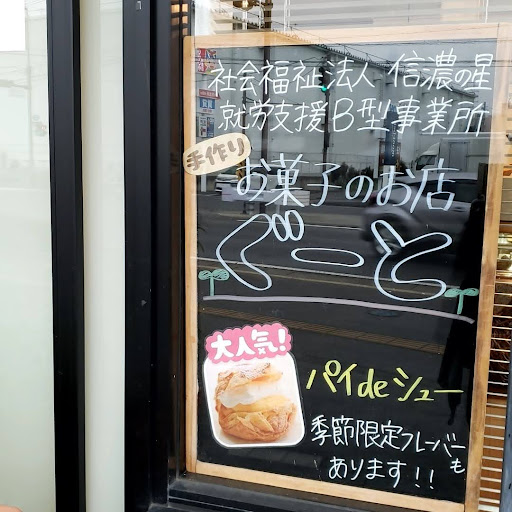 社会福祉法人 信濃の星
就労支援B型事業所
手作り
お菓子のお店
ぐーと
大人気!
パイdeシュー
季節限定フレーバーも
あります!!